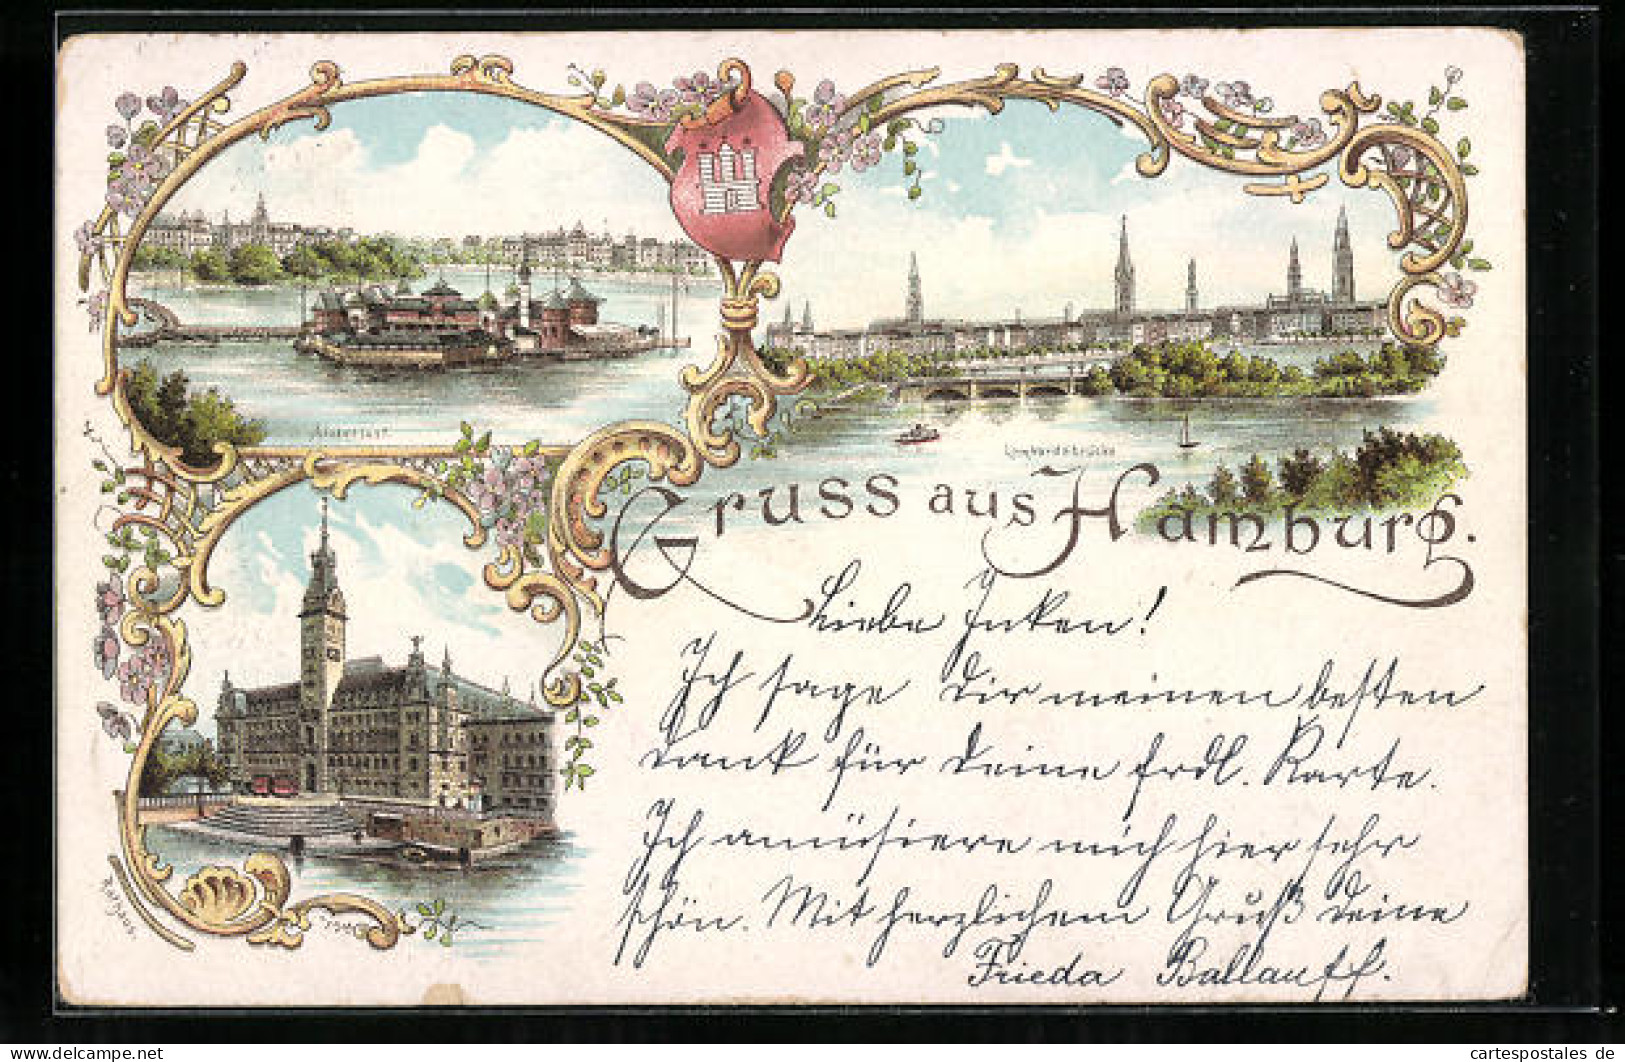 Alsterlust.
Lombardsbrücke
Gruss aus Hamburg.
Rathaus.
Liebe Inken!
Ich sage Dir meinen besten
Dank für Deine frdl. Karte.
Ich amüsiere mich hier sehr
schön. Mit herzlichem Gruß Deine
Frieda Ballauff.
www.delcampe.net
cartespostales de